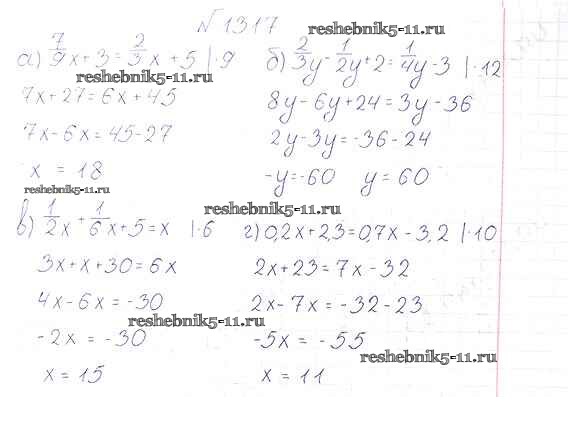 №1317
reshebnik5-11.ru
а) 7/9 x + 3 = 2/3 x + 5 | · 9
reshebnik5-11.ru
7x + 27 = 6x + 45
7x - 6x = 45 - 27
x = 18
reshebnik5-11.ru
б) 2/3 y - 1/2 y + 2 = 1/4 y - 3 | · 12
8y - 6y + 24 = 3y - 36
2y - 3y = -36 - 24
-y = -60 y = 60
reshebnik5-11.ru
в) 1/2 x + 1/6 x + 5 = x | · 6
3x + x + 30 = 6x
4x - 6x = -30
reshebnik5-11.ru
-2x = -30
x = 15
г) 0,2x + 2,3 = 0,7x - 3,2 | · 10
2x + 23 = 7x - 32
2x - 7x = -32 - 23
-5x = -55
reshebnik5-11.ru
x = 11